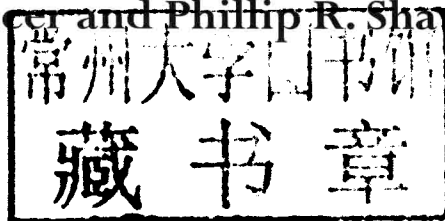 cer and Phillip R. Sha
常州大学图书馆
藏书章